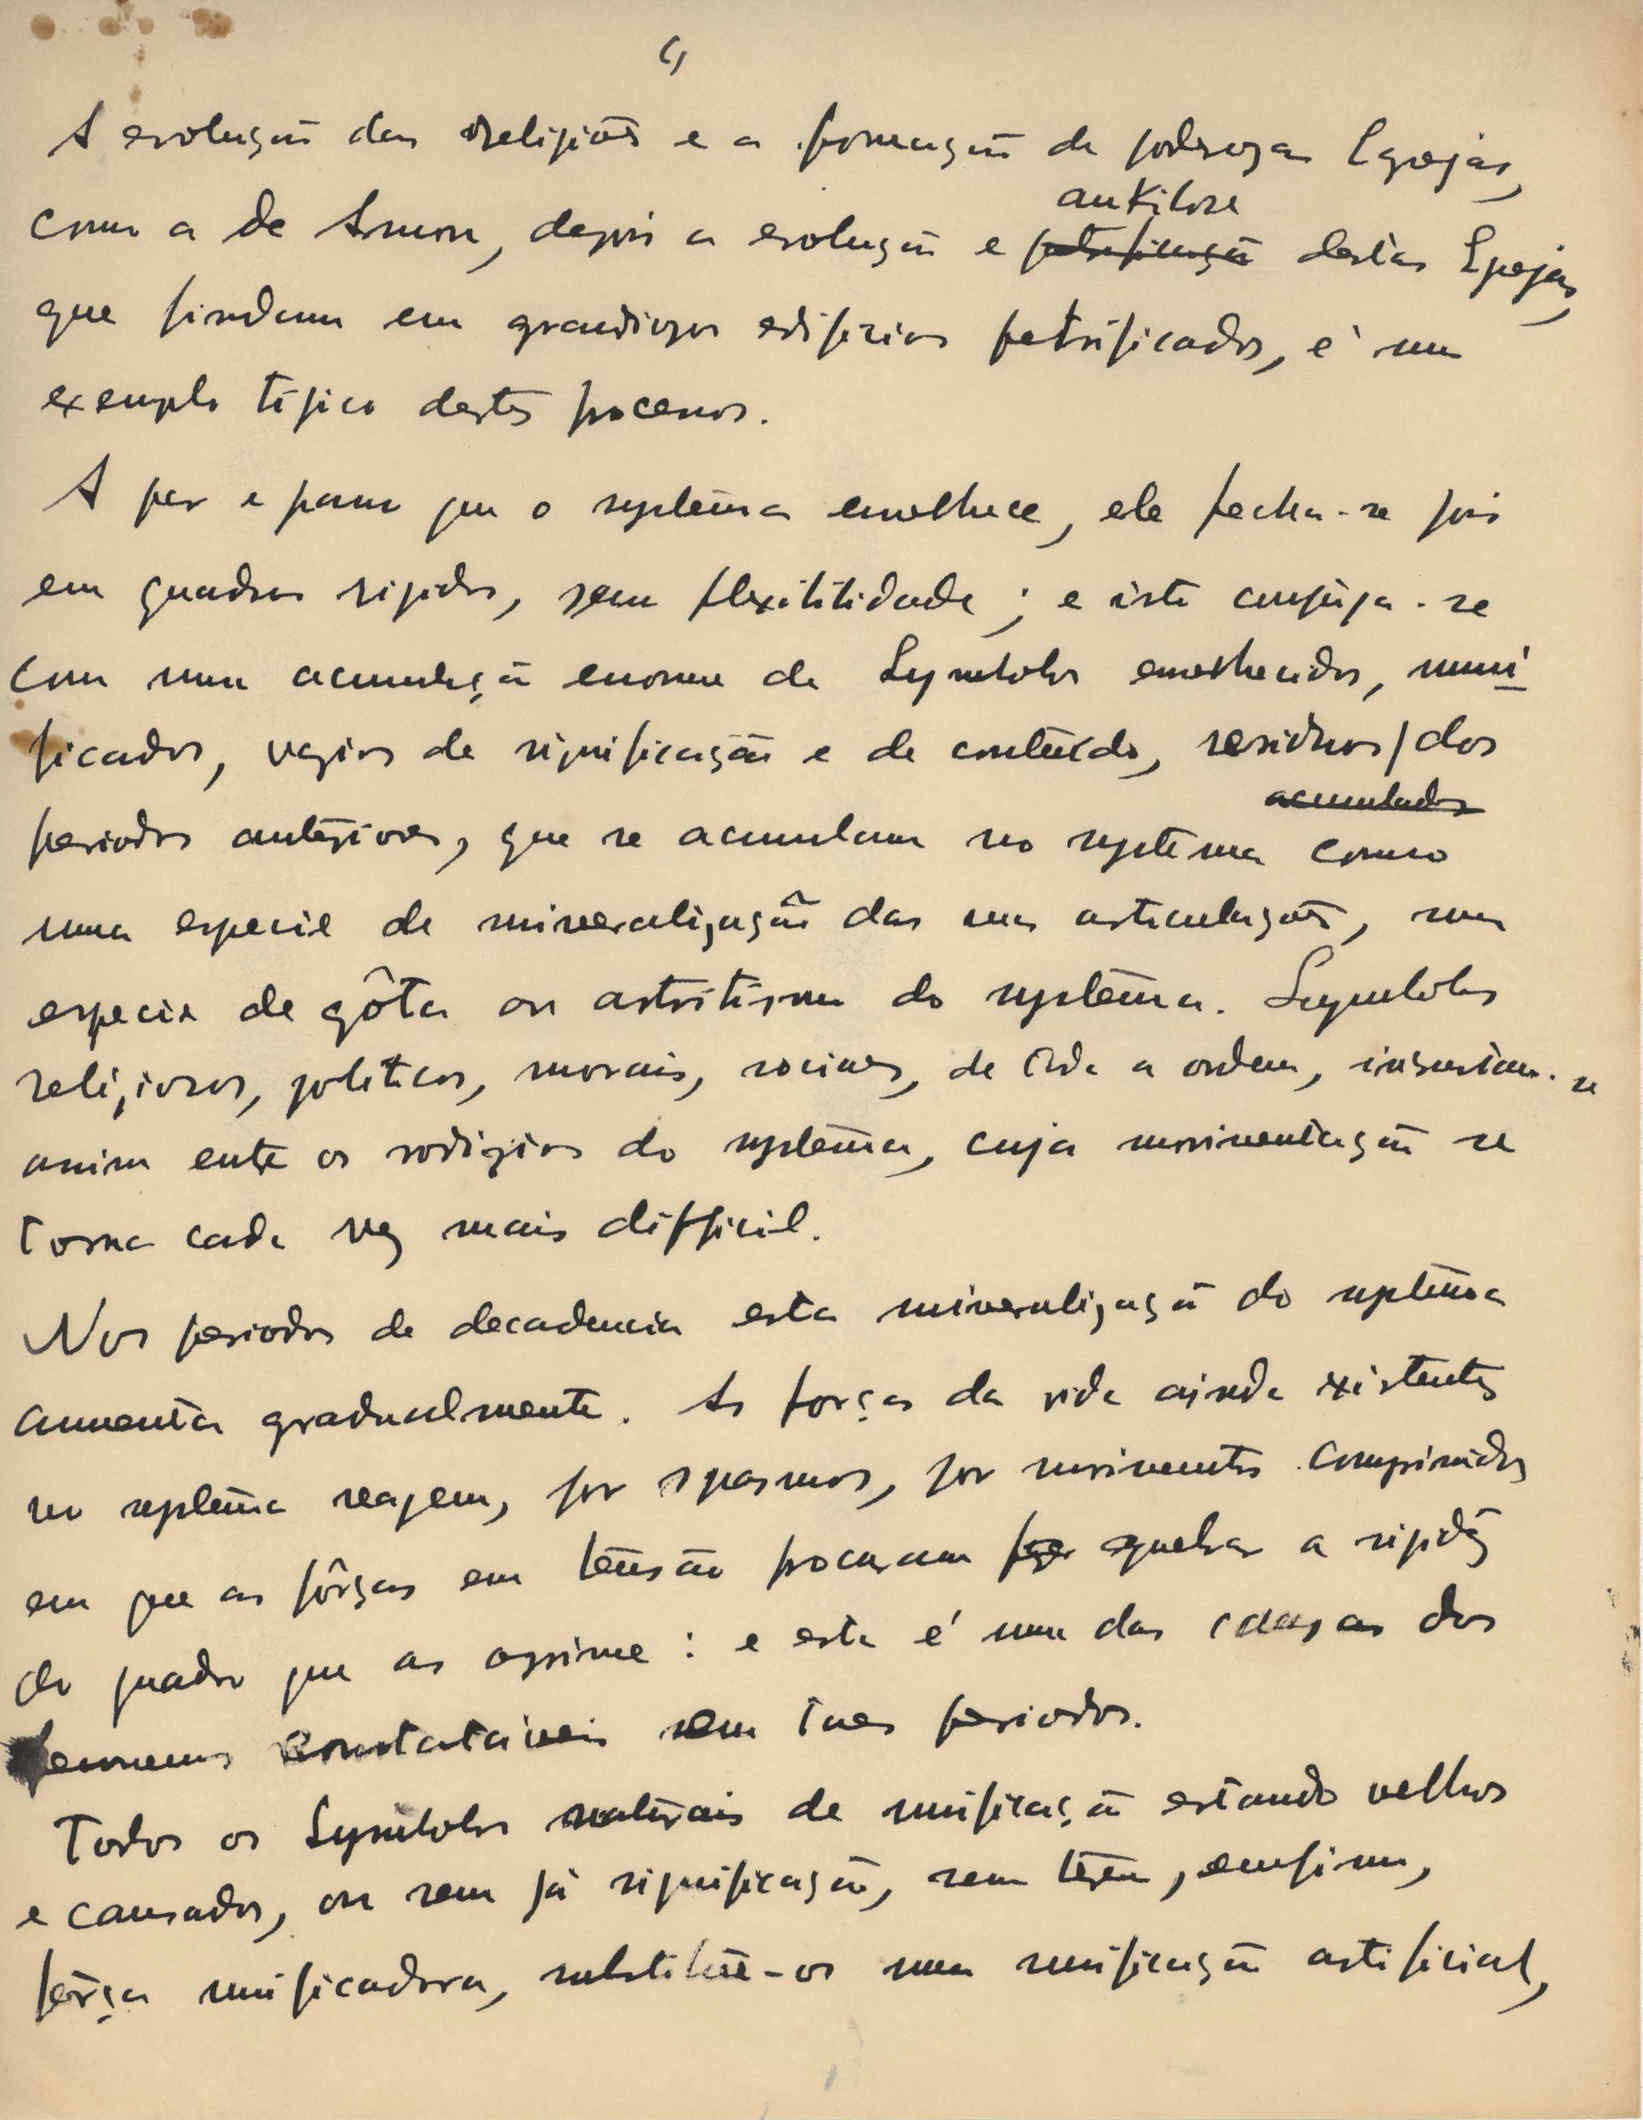 A evolução das religiões e a formação de poderozas Egrejas,
como a de Amon, depois a evolução e
ankilose
petrificação destas Egrejas,
que findam em grandiozos edificios petrificados, é um
exemplo típico destes processos.
A par e passo que o systema envelhece, ele fecha-se pois
em quadros rigidos, sem flexibilidade; e isto conjuga-se
com uma acumulação enorme de Symbolos envelhecidos, mumi
ficados, vazios de significação e de conteúdo, residuos / dos
acumulados
periodos anteriores, que se acumulam no systema como
uma especie de mineralização das suas articulações, uma
especie de gôta ou artritismo do systema. Symbolos
religiosos, politicos, morais, sociaes, de toda a ordem, incrustam-se
assim entre os rodizios do systema, cuja movimentação se
torna cada vez mais difficil.
Nos periodos de decadencia esta mineralização do systema
aumenta gradualmente. As forças da vida ainda existentes
no systema reagem, por spasmos, por movimentos comprimidos
em que as fôrças em tensão procuram quebrar a rigidez
do quadro que as oprime: e esta é uma das causas dos
fenomenos constataveis em taes periodos.
Todos os Symbolos naturais de unificação estando velhos
e cansados, ou sem já significação, sem terem, emfim,
fôrça unificadora, substitue-os uma unificação artificial,